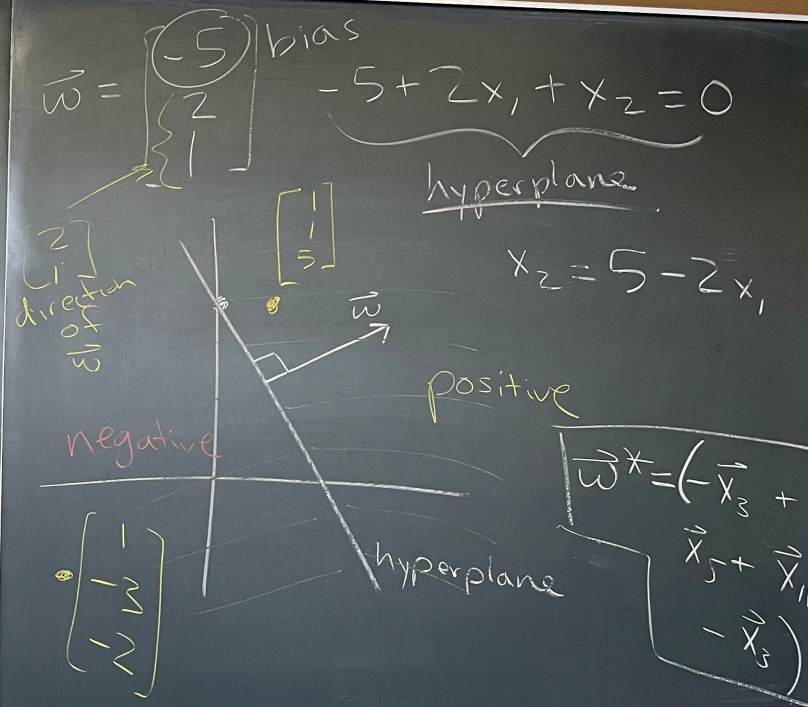 w⃗ = [-5 2 1] bias
-5 + 2x₁ + x₂ = 0
hyperplane
x₂ = 5 - 2x₁
[2 1]
direction
of
w⃗
[1 1 5]
w⃗
positive
negative
[1 -3 -2]
hyperplane
w⃗* = (-x⃗₃ +
x⃗₅ + x⃗₁
- x⃗₃)